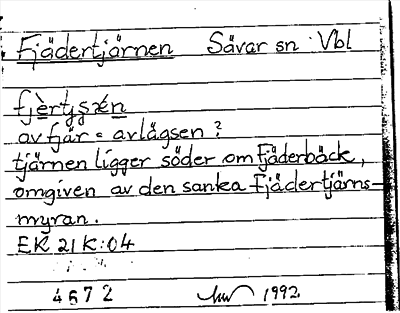 Fjädertjärnen Sävar sn Vbl
av fjär = avlägsen?
tjärnen ligger söder om Fjäderbäck,
omgiven av den sanka Fjädertjärns-
myran.
EK 21K:04
4672 1992